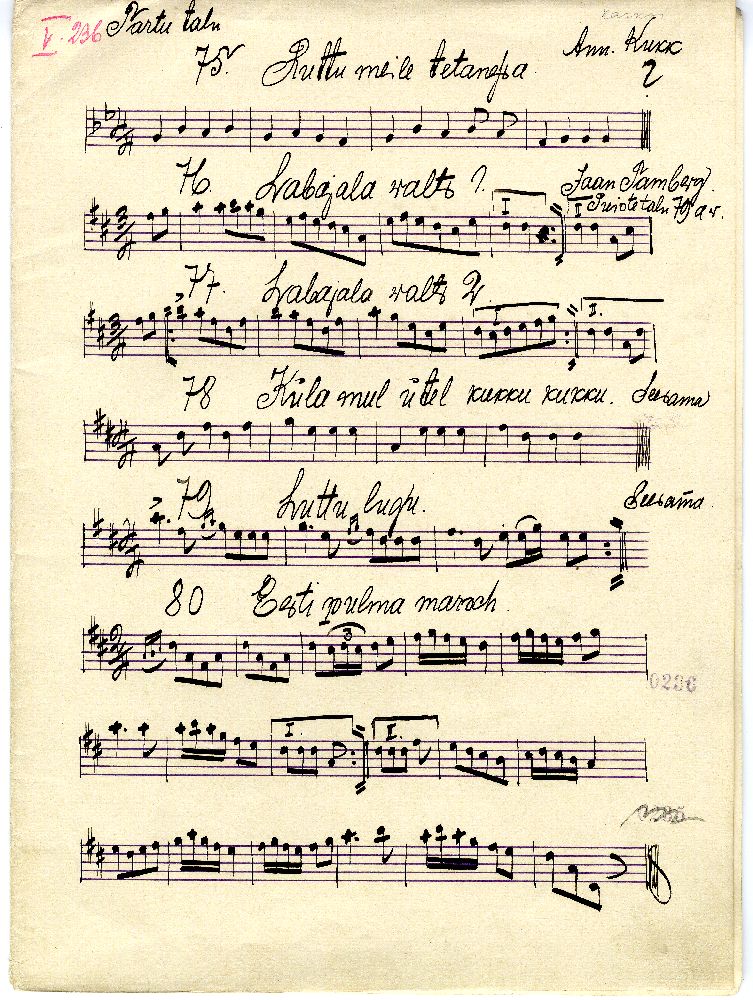 V. 236 Partu talu
Ann. Kukk
75. Ruttu meile tetanessa 2
76. Labajala valts 1. Jaan Tamberg.
Puiste talu 79 a v.
I I
77. Labajala valts 2
I. I.
78 Küla mul ütel kukku kukku. Seesama
79 Luttu lugu. Seesama.
80 Eesti pulma marsch.
3
0236
I. I.